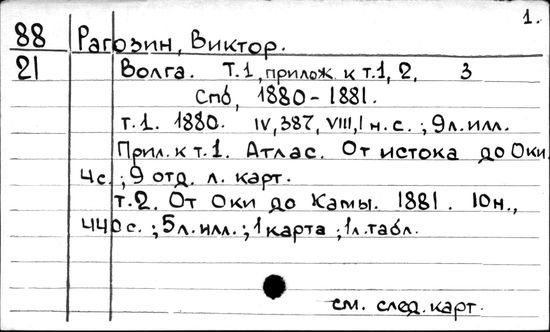 1.
88 Рагозин, Виктор.
21 Волга. Т.1, прилож. к т.1, 2, 3
Спб, 1880-1881.
т.1. 1880. IV, 387, VIII, I н.с.; 9л.илл.
Прил. к т.1. Атлас. От истока до Оки.
4с.; 9 отд. л. карт.
т.2. От Оки до Камы. 1881. 10н.,
440с.; 5л.илл.; 1карта; 1л.табл.
см. след. карт.